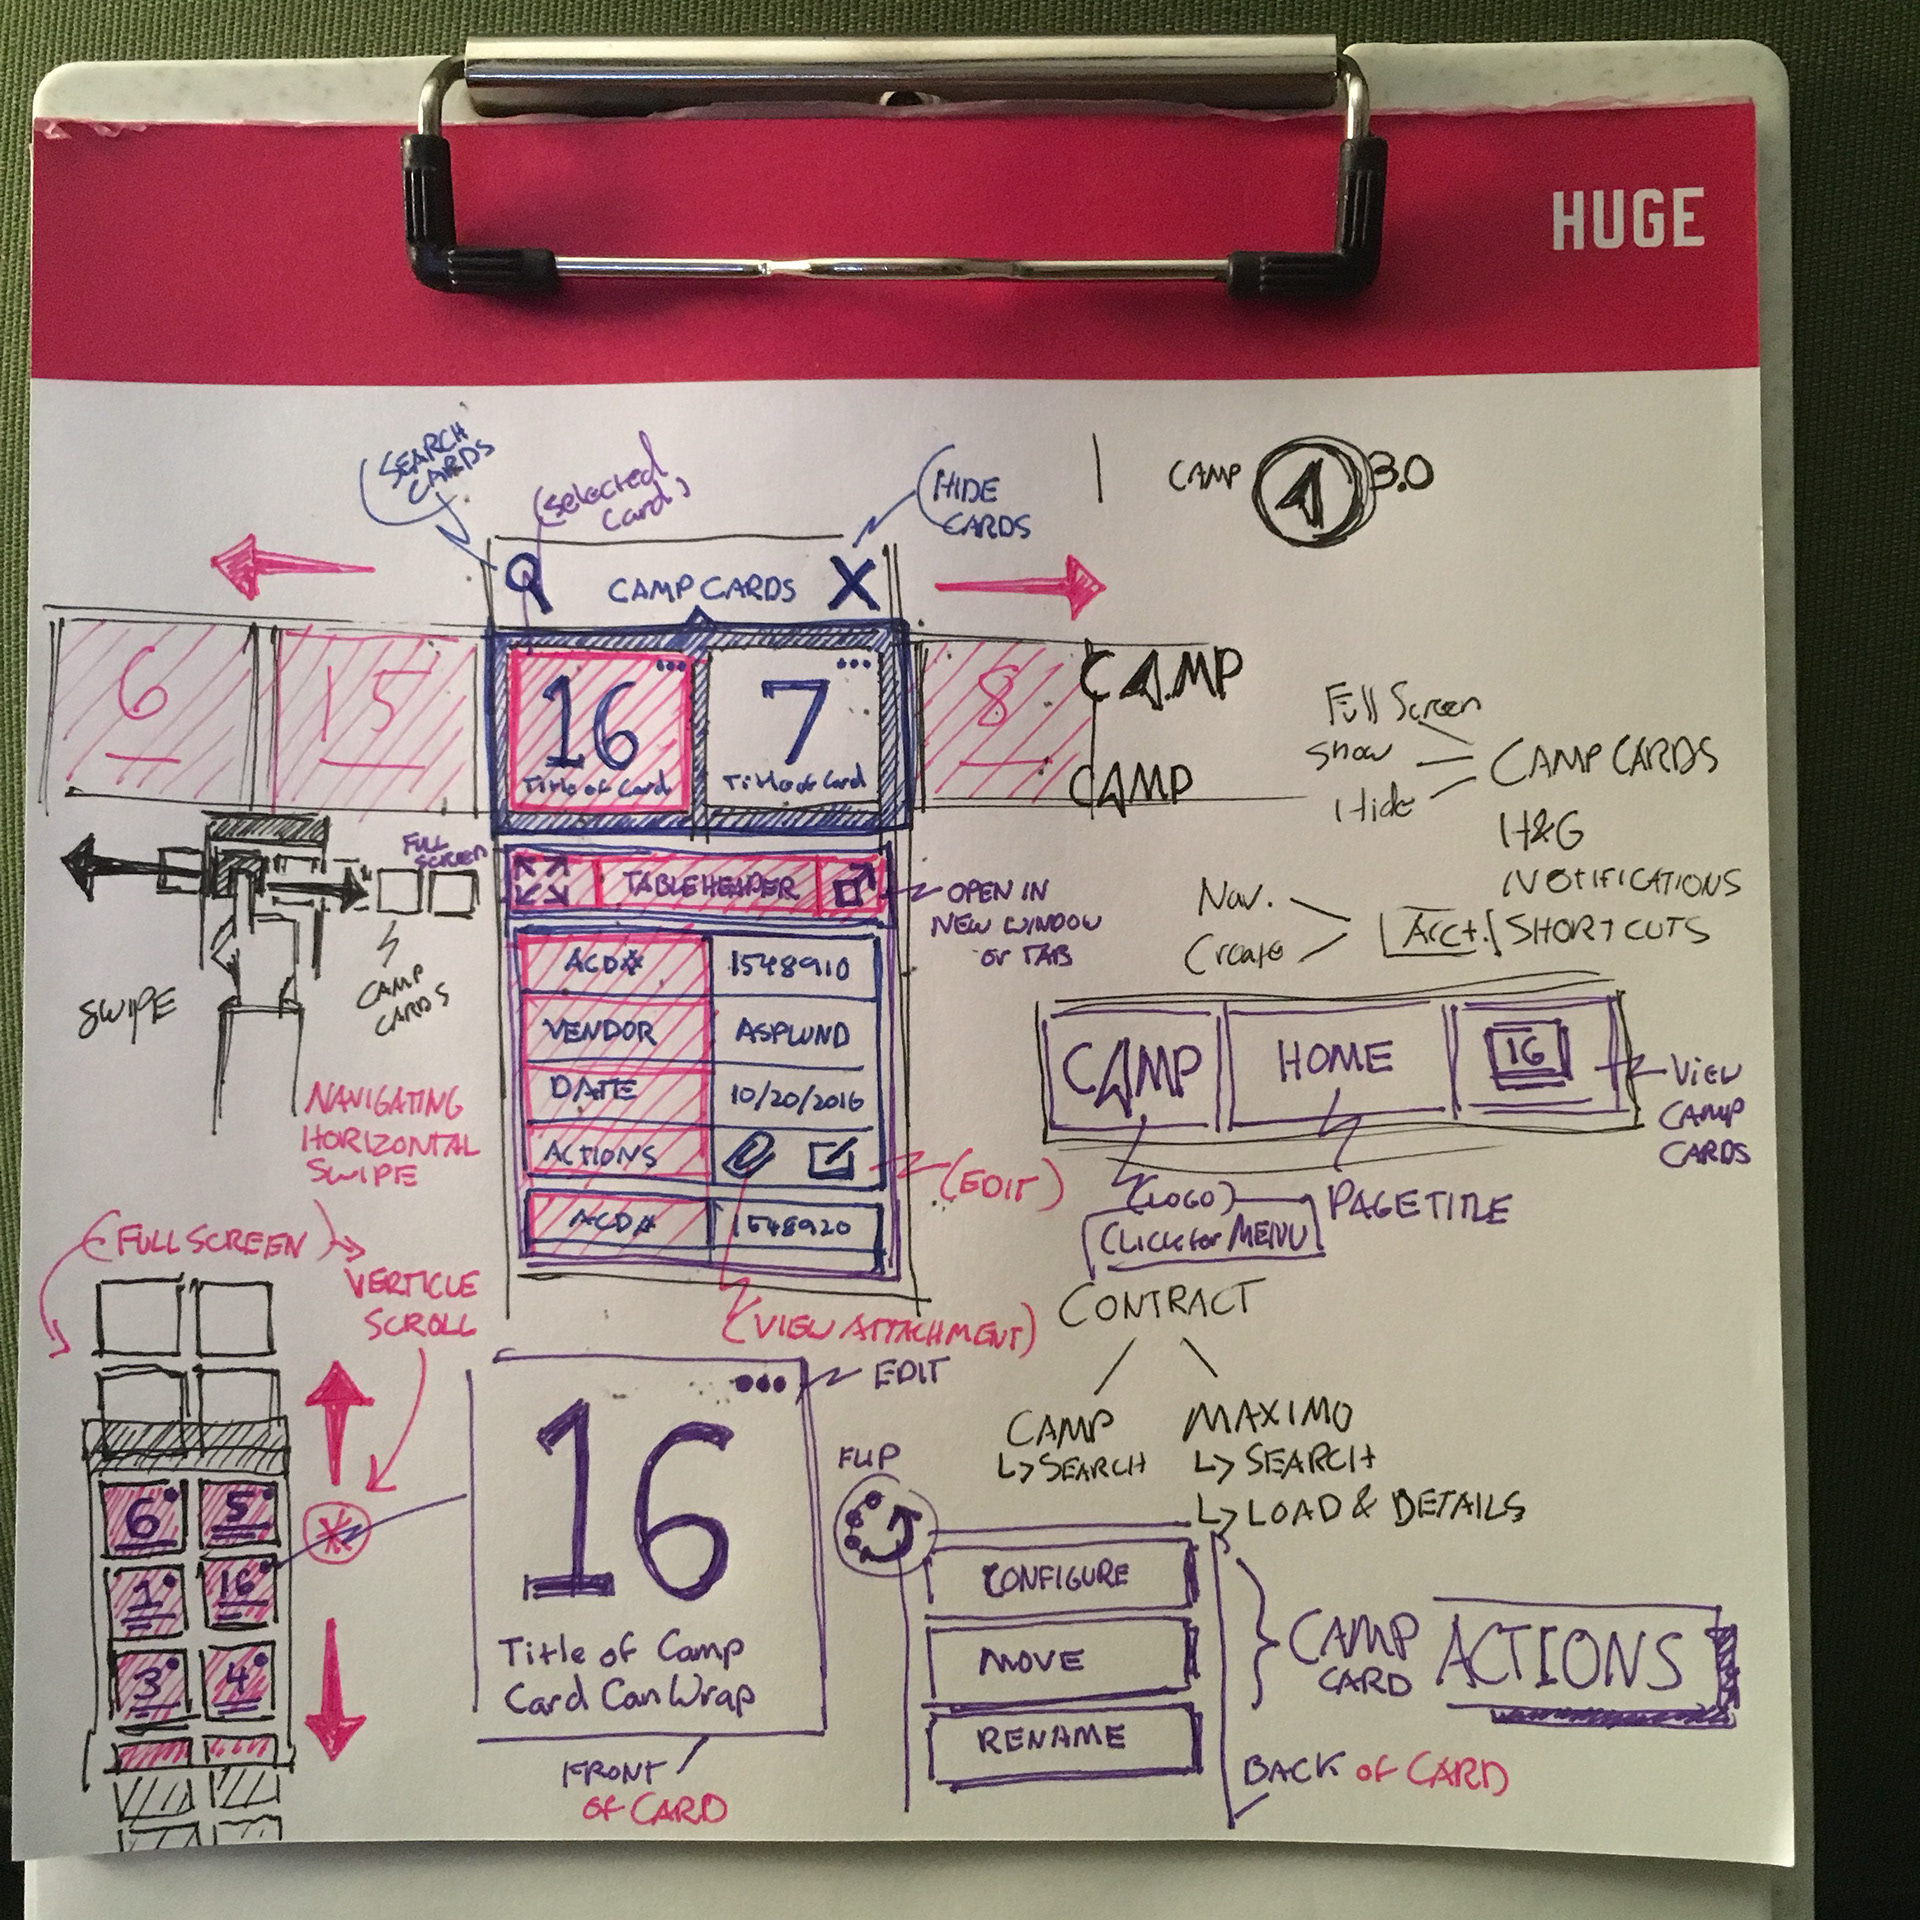 HUGE
SEARCH
CARDS
(Selected
Card)
HIDE
CARDS
CAMP 3.0
CAMP CARDS
X
6
15
16
Title of Card
7
Title of Card
8
CAMP
CAMP
Full Screen
Show
Hide
CAMP CARDS
H&G
NOTIFICATIONS
SHORTCUTS
Nav.
Create
Acct.
FULL
SCREEN
SWIPE
CAMP
CARDS
TABLE HEADER
OPEN IN
NEW WINDOW
or TAB
ACD#
1548910
VENDOR
ASPLUND
DATE
10/20/2016
ACTIONS
(EDIT)
ACD#
1548920
(VIEW ATTACHMENT)
NAVIGATING
HORIZONTAL
SWIPE
(FULL SCREEN)
VERTICLE
SCROLL
CAMP
HOME
16
VIEW
CAMP
CARDS
(LOGO)
Click for MENU
PAGE TITLE
CONTRACT
CAMP
↳ SEARCH
MAXIMO
↳ SEARCH
↳ LOAD & DETAILS
6
5
1
16
3
4
EDIT
16
Title of Camp
Card Can Wrap
FRONT
of CARD
FLIP
CONFIGURE
MOVE
RENAME
CAMP
CARD
ACTIONS
BACK of CARD